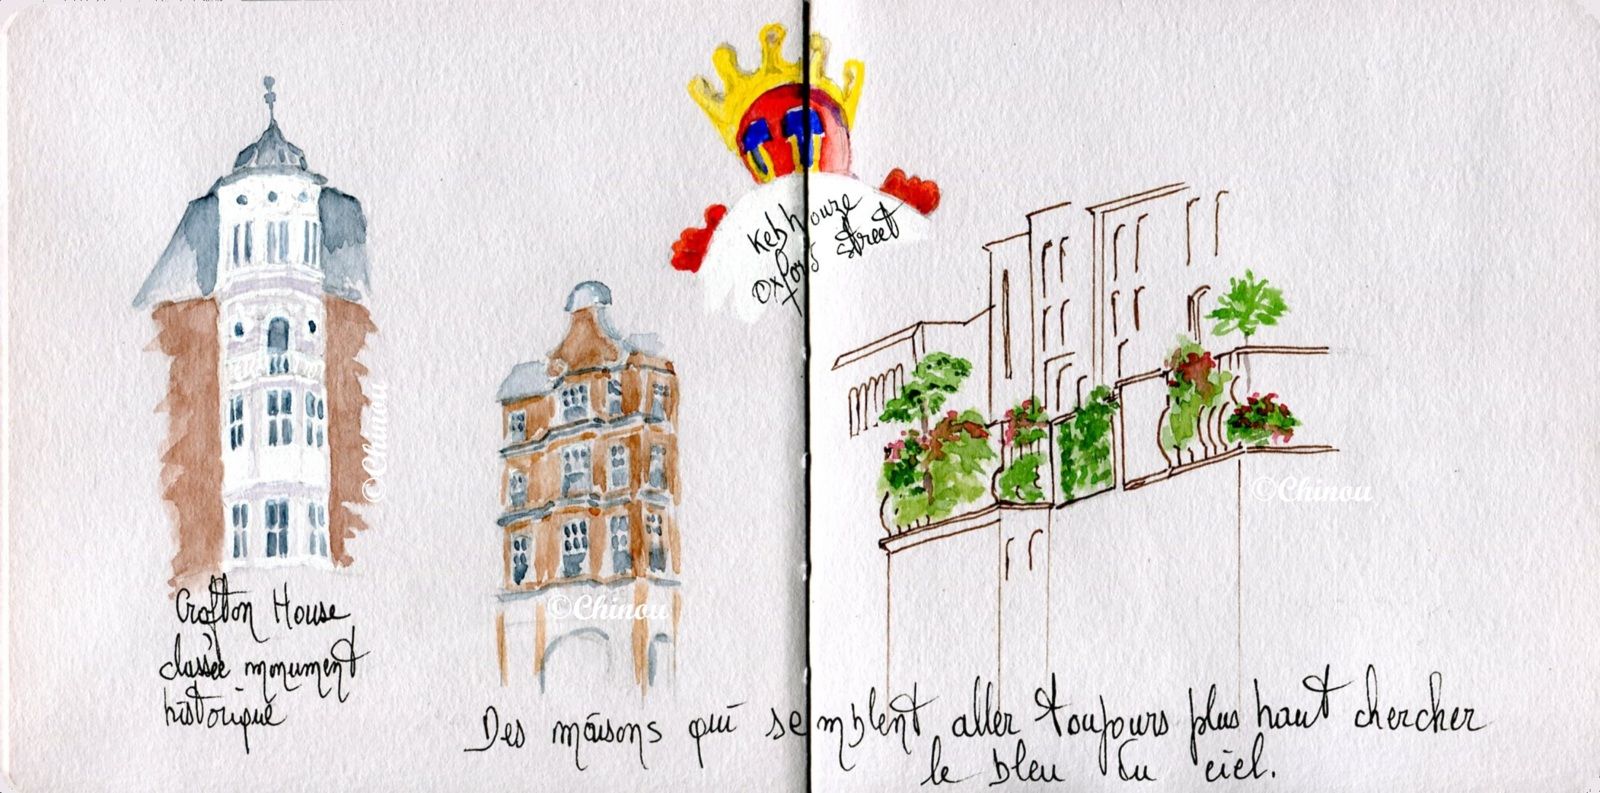 Kebhouze
Oxford street
©Chinou
©Chinou
©Chinou
Crofton House
classée monument
historique
Des maisons qui semblent aller toujours plus haut chercher
le bleu du ciel.